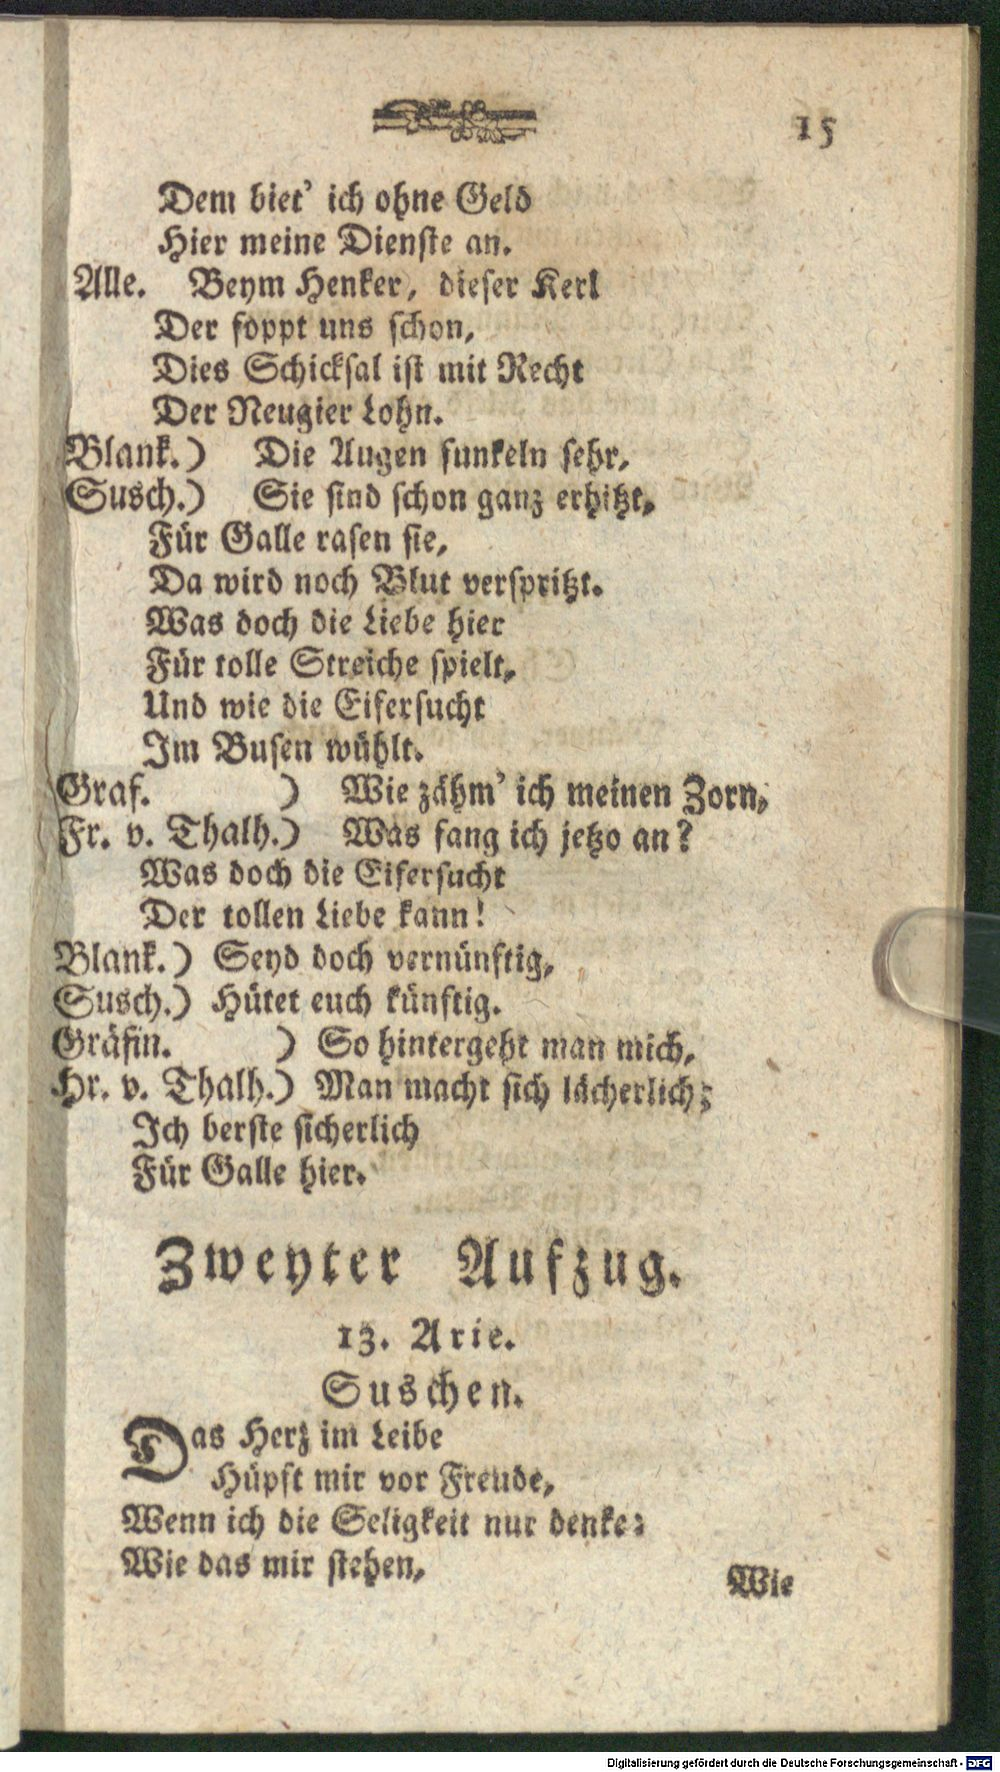 15
Dem biet' ich ohne Geld
Hier meine Dienste an.
Alle. Beym Henker, dieser Kerl
Der foppt uns schon,
Dies Schicksal ist mit Recht
Der Neugier Lohn.
Blank.) Die Augen funkeln sehr,
Susch.) Sie sind schon ganz erhitzt,
Für Galle rasen sie,
Da wird noch Blut verspritzt.
Was doch die Liebe hier
Für tolle Streiche spielt,
Und wie die Eifersucht
Im Busen wühlt.
Graf. ) Wie zähm' ich meinen Zorn,
Fr. v. Thalh.) Was fang ich jetzo an?
Was doch die Eifersucht
Der tollen Liebe kann!
Blank.) Seyd doch vernünftig,
Susch.) Hütet euch künftig.
Gräfin. ) So hintergeht man mich,
Hr. v. Thalh.) Man macht sich lächerlich;
Ich berste sicherlich
Für Galle hier.
Zweyter Aufzug.
13. Arie.
Suschen.
Das Herz im Leibe
Hüpft mir vor Freude,
Wenn ich die Seligkeit nur denke:
Wie das mir stehen,
Wie
Digitalisierung gefördert durch die Deutsche Forschungsgemeinschaft - DFG